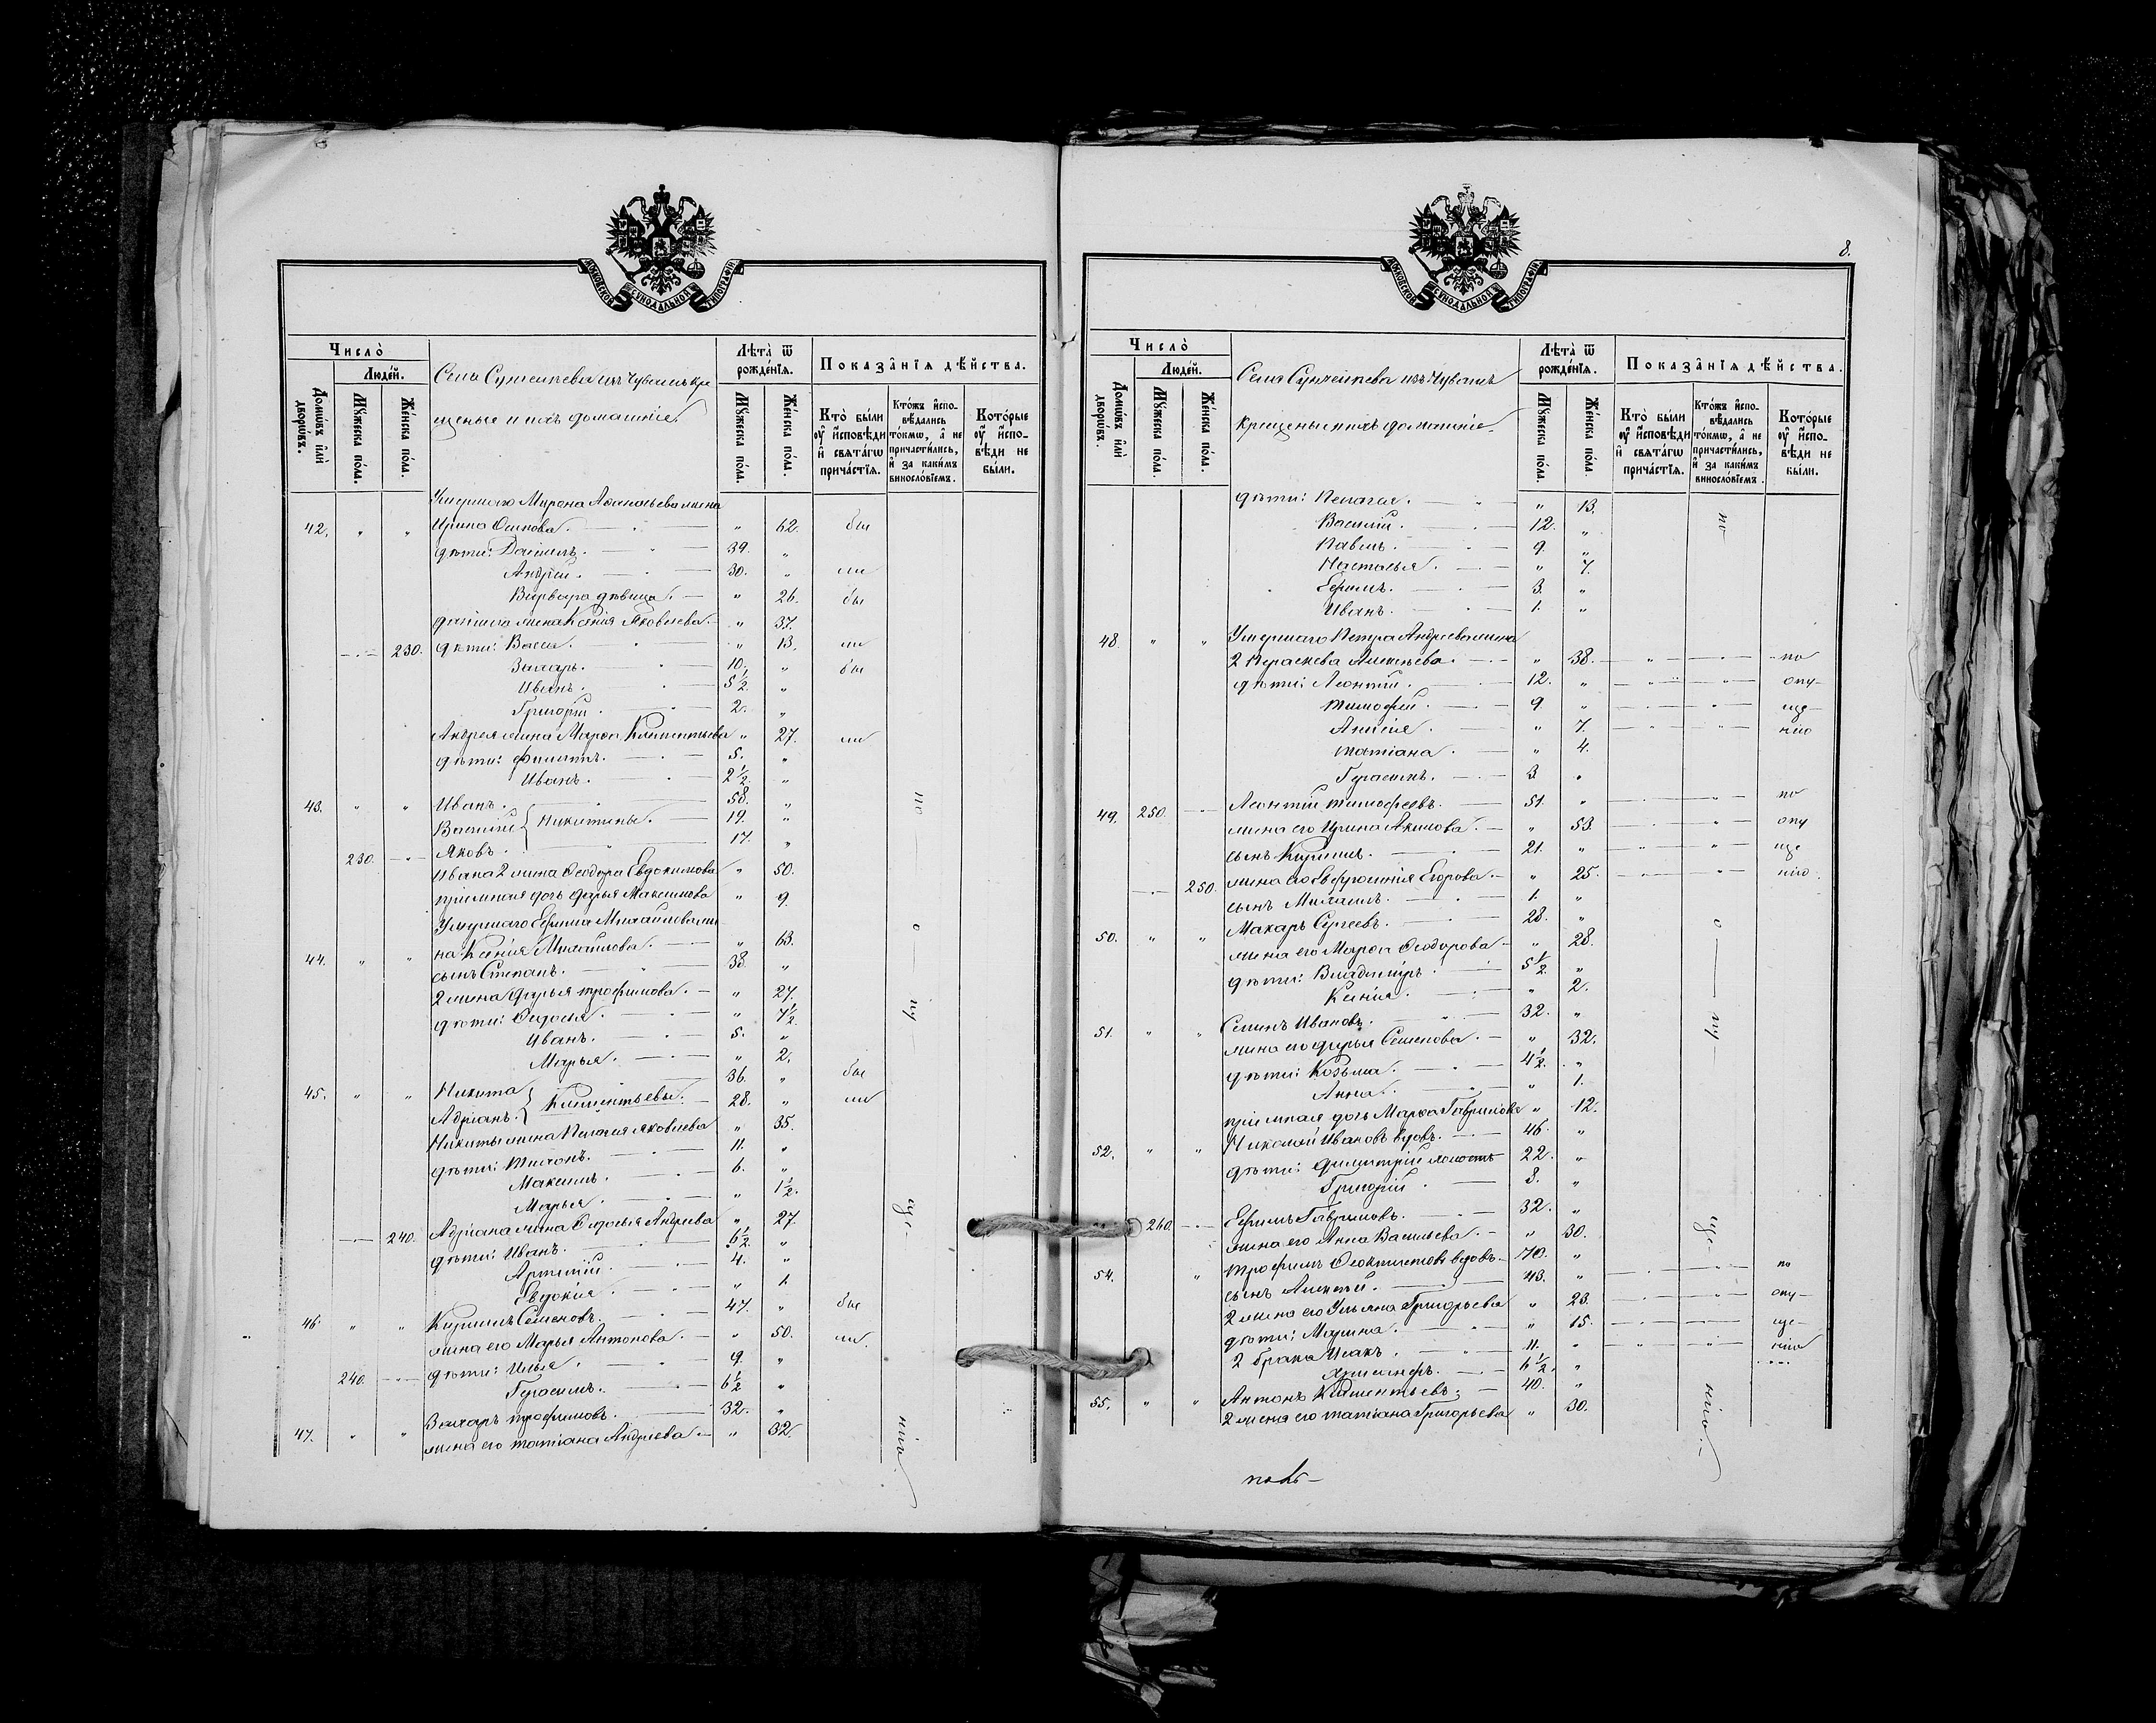 МОСКОВСКОЙ СѴНОДАЛЬНОЙ ТИПОГРАФІИ
Число̀
Людей.
Домѡвъ и҆лѝ дворѡ́въ.
Мꙋжеска пола.
Женска пола.
Села Сунчелеева изъ Чувашъ кре
щеные и ихъ домашніе.
Лѣта̀ ѿ рожденїѧ.
Мꙋжеска пола.
Женска пола.
Показанїѧ дѣйства.
Кто̀ были ᲂу҆ и҆сповѣди и҆ свѧтагѡ причастїѧ.
Ктожъ и҆спо- вѣдались токмѡ, а҆ не причастились, и҆ за какимъ винословїемъ.
Которые ᲂу҆ и҆спо- вѣди не были.
Умершаго Мирона Афанасьева жена
42. " " Ирина Осипова. " 62. бы
дѣти: Даніилъ. 39. "
Андрей. 30. " ли
Варвара дѣвица. " 26. бы
Даніила жена Ксенія Яковлева. " 37.
230. дѣти: Васса. " 13. ли
Захаръ. 10. " бы
Иванъ. 5½ "
Григорій. 2. "
Андрея жена Марѳа Климентьева " 27. ли
дѣти: Филиппъ. 5. "
Иванъ. 2½. "
43. " " Иванъ. 58. " по
Василій } Никитины. 19. "
230. Яковъ. 17. "
Ивана 2 жена Ѳеодора Евдокимова " 50.
пріемная дочь Дарья Максимова " 9.
Умершаго Ефима Михайлова же
44. " " на Ксенія Михайлова. " 63. о
сынъ Степанъ. 38. "
2 жена Дарья Трофимова. " 27.
дѣти: Ѳедосья. " 7½. пу
Иванъ. 5. "
Марья. " 2.
45. " " Никита } Климентьевы. 36. " бы
Адріанъ. 28. " ли
Никиты жена Пелагія Яковлева " 35.
дѣти: Тихонъ. 11. "
Максимъ. 6. "
Марья. " 1½. ще
240. Адріана жена Ѳедосья Андреева " 27.
дѣти: Иванъ. 6½. "
Артемій. 4. "
Евдокія. " 1.
46 " " Кириллъ Семеновъ. 47. " бы
жена его Марья Антонова. " 50. ли
240. дѣти: Илья. 9. "
Герасимъ. 6½ "
Захаръ Трофимовъ. 32. "
47. " " жена его Татіана Андреева " 32. нію
8.
Число̀
Людей.
Домѡвъ и҆лѝ дворѡ́въ.
Мꙋжеска пола.
Женска пола.
Села Сунчелеева изъ Чувашъ
крещеные и ихъ домашніе.
Лѣта̀ ѿ рожденїѧ.
Мꙋжеска пола.
Женска пола.
Показанїѧ дѣйства.
Кто̀ были ᲂу҆ и҆сповѣди и҆ свѧтагѡ причастїѧ.
Ктожъ и҆спо- вѣдались токмѡ, а҆ не причастились, и҆ за какимъ винословїемъ.
Которые ᲂу҆ и҆спо- вѣди не были.
дѣти: Пелагія. " 13.
Василій. 12. " по
Павелъ. 9. "
Настасья. " 7.
Ефимъ. 3. "
Иванъ. 1. "
48 " " Умершаго Петра Андреева жена
2 Параскева Алексѣева. " 38. по
дѣти: Леонтій. 12. " опу
Тимофей. 9. " ще
Анисія. " 7. нію
Татіана. " 4.
Герасимъ. 3. "
49. 250. Леонтій Тимофеевъ. 51. " по
жена его Ирина Акимова. " 53. опу
сынъ Кириллъ. 21. " ще
250. жена его Евфросинія Егорова. " 25. нію
сынъ Михаилъ. 1. "
50. " " Макаръ Сергеевъ. 28. " о
жена его Марѳа Ѳеодорова " 28.
дѣти: Владиміръ. 5½. "
Ксенія. " 2.
51. " " Семенъ Ивановъ. 32. " пу
жена его Дарья Семенова. " 32.
дѣти: Козьма. 4½. "
Анна. " 1.
пріемная дочь Марѳа Гаврилова " 12.
52. " " Николай Ивановъ вдовъ. 46. "
дѣти: Димитрій холостъ 22. "
Григорій. 8. "
260. Ефимъ Гавриловъ. 32. " ще
жена его Анна Васильева. " 30.
54. " Трофимъ Ѳеоктистовъ вдовъ. 70. " по
сынъ Алексѣй. 43. " опу
2 жена его Ульяна Григорьева " 23. ще
дѣти: Марина. " 15. нію
2 брака Исакъ. 11. "
6½. "
55. " " Антонъ Климентьевъ. 40. " нію
2 жена его Татіана Григорьева " 30.